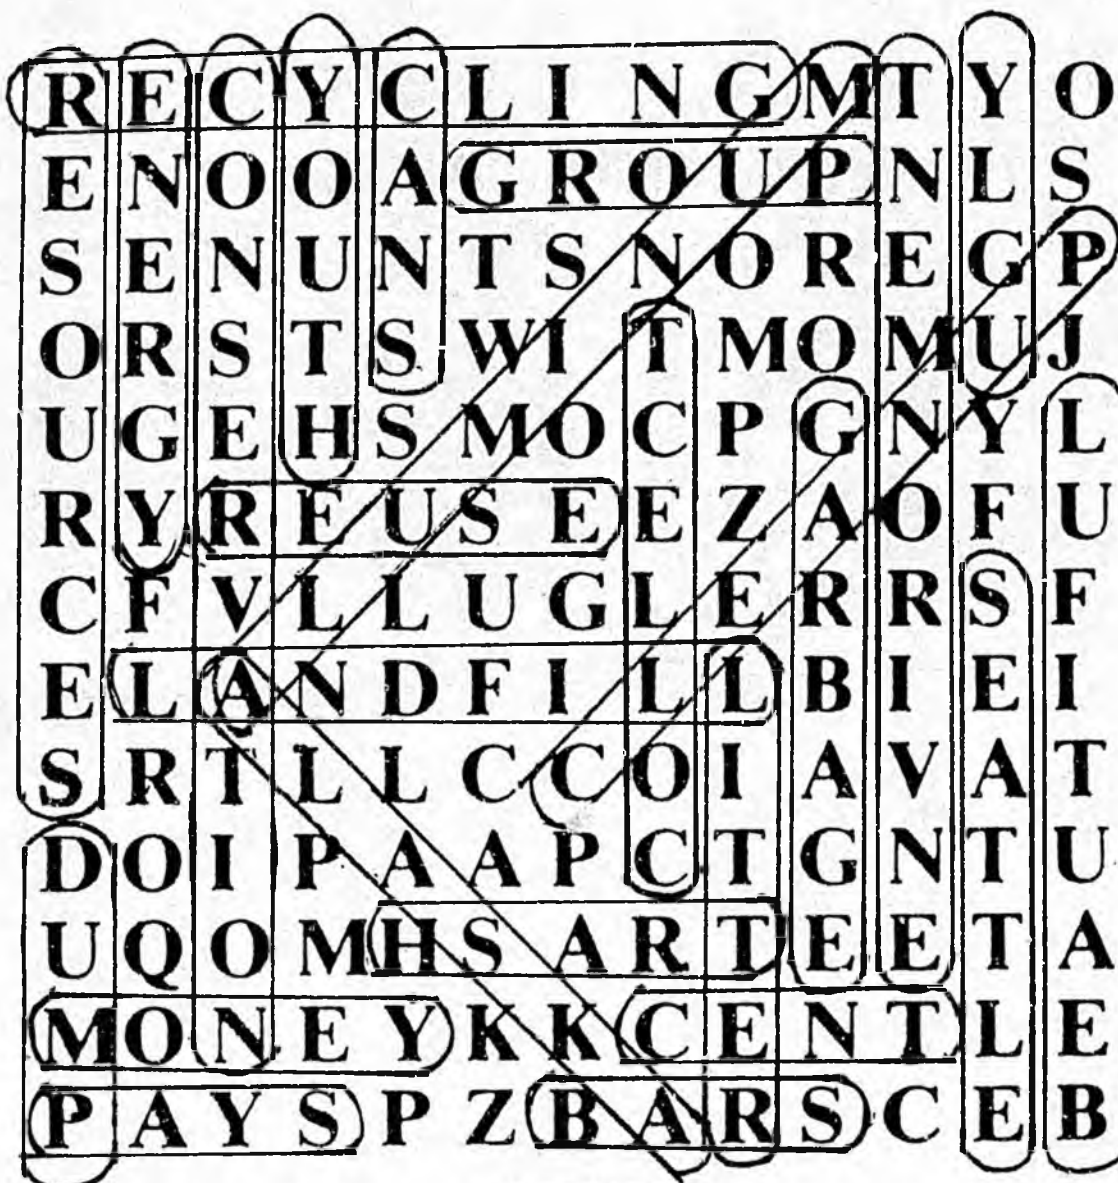 R E C Y C L I N G M T Y O
E N O O A G R O U P N L S
S E N U N T S N O R E G P
O R S T S W I T M O M U J
U G E H S M O C P G N Y L
R Y R E U S E E Z A O F U
C F V L L U G L E R R S F
E L A N D F I L L B I E I
S R T L L C C O I A V A T
D O I P A A P C T G N T U
U Q O M H S A R T E E T A
M O N E Y K K C E N T L E
P A Y S P Z B A R S C E B